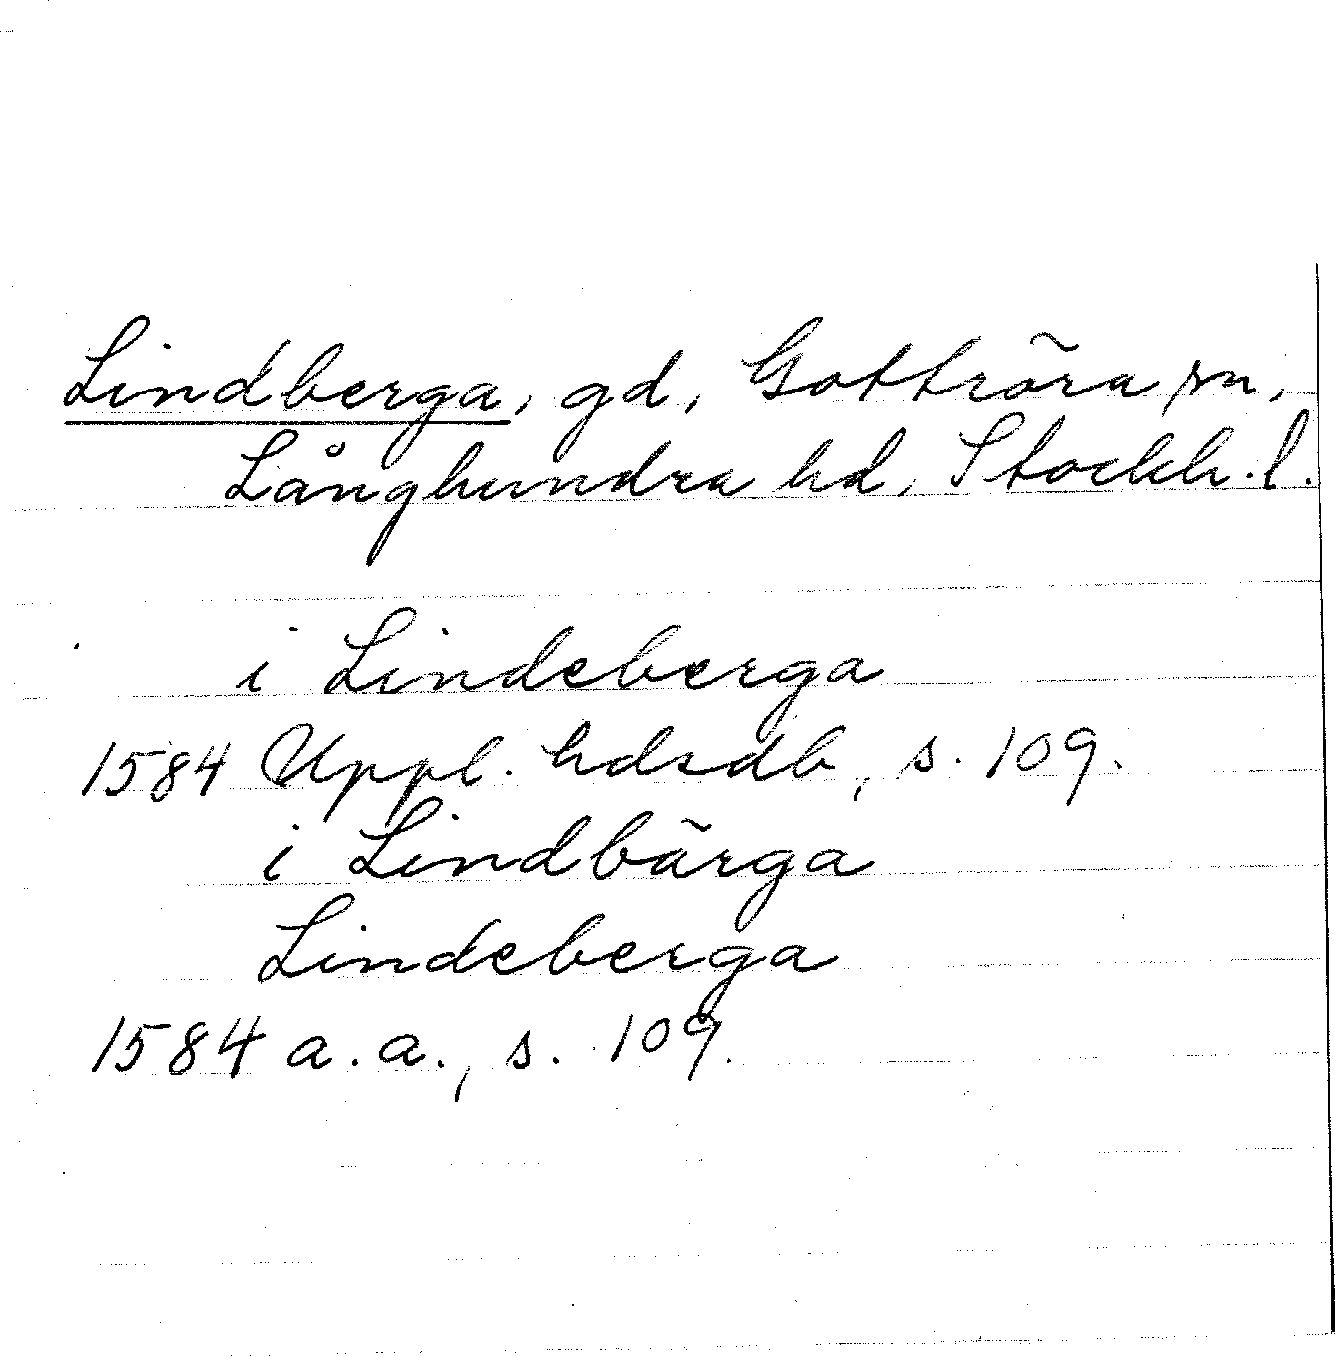 Lindberga, gd, Gottröra sn,
Långhundra hd, Stockh. l.
i Lindeberga
1584 Uppl. hdsdb, s. 109.
i Lindbärga
Lindeberga
1584 a.a., s. 109.